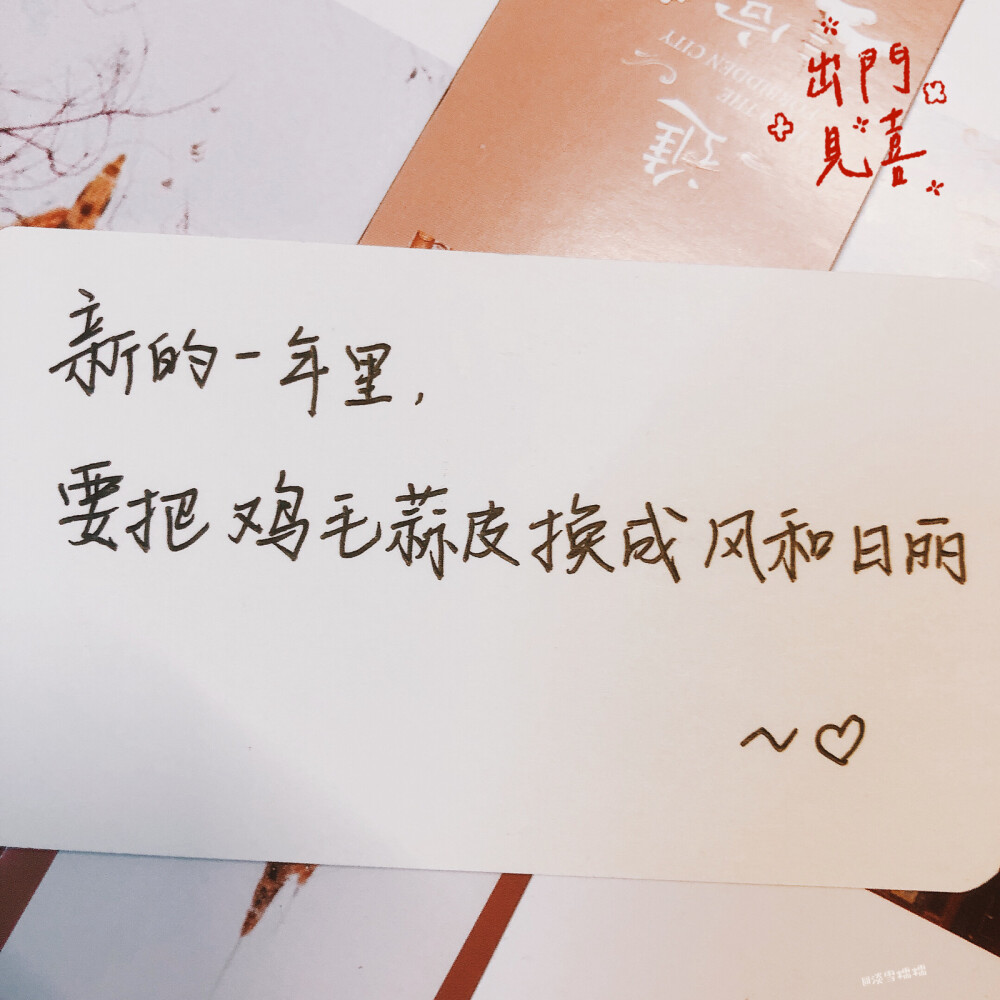 出門
見喜
THE
FORBIDDEN CITY
新的一年里,
要把鸡毛蒜皮换成风和日丽
~♡